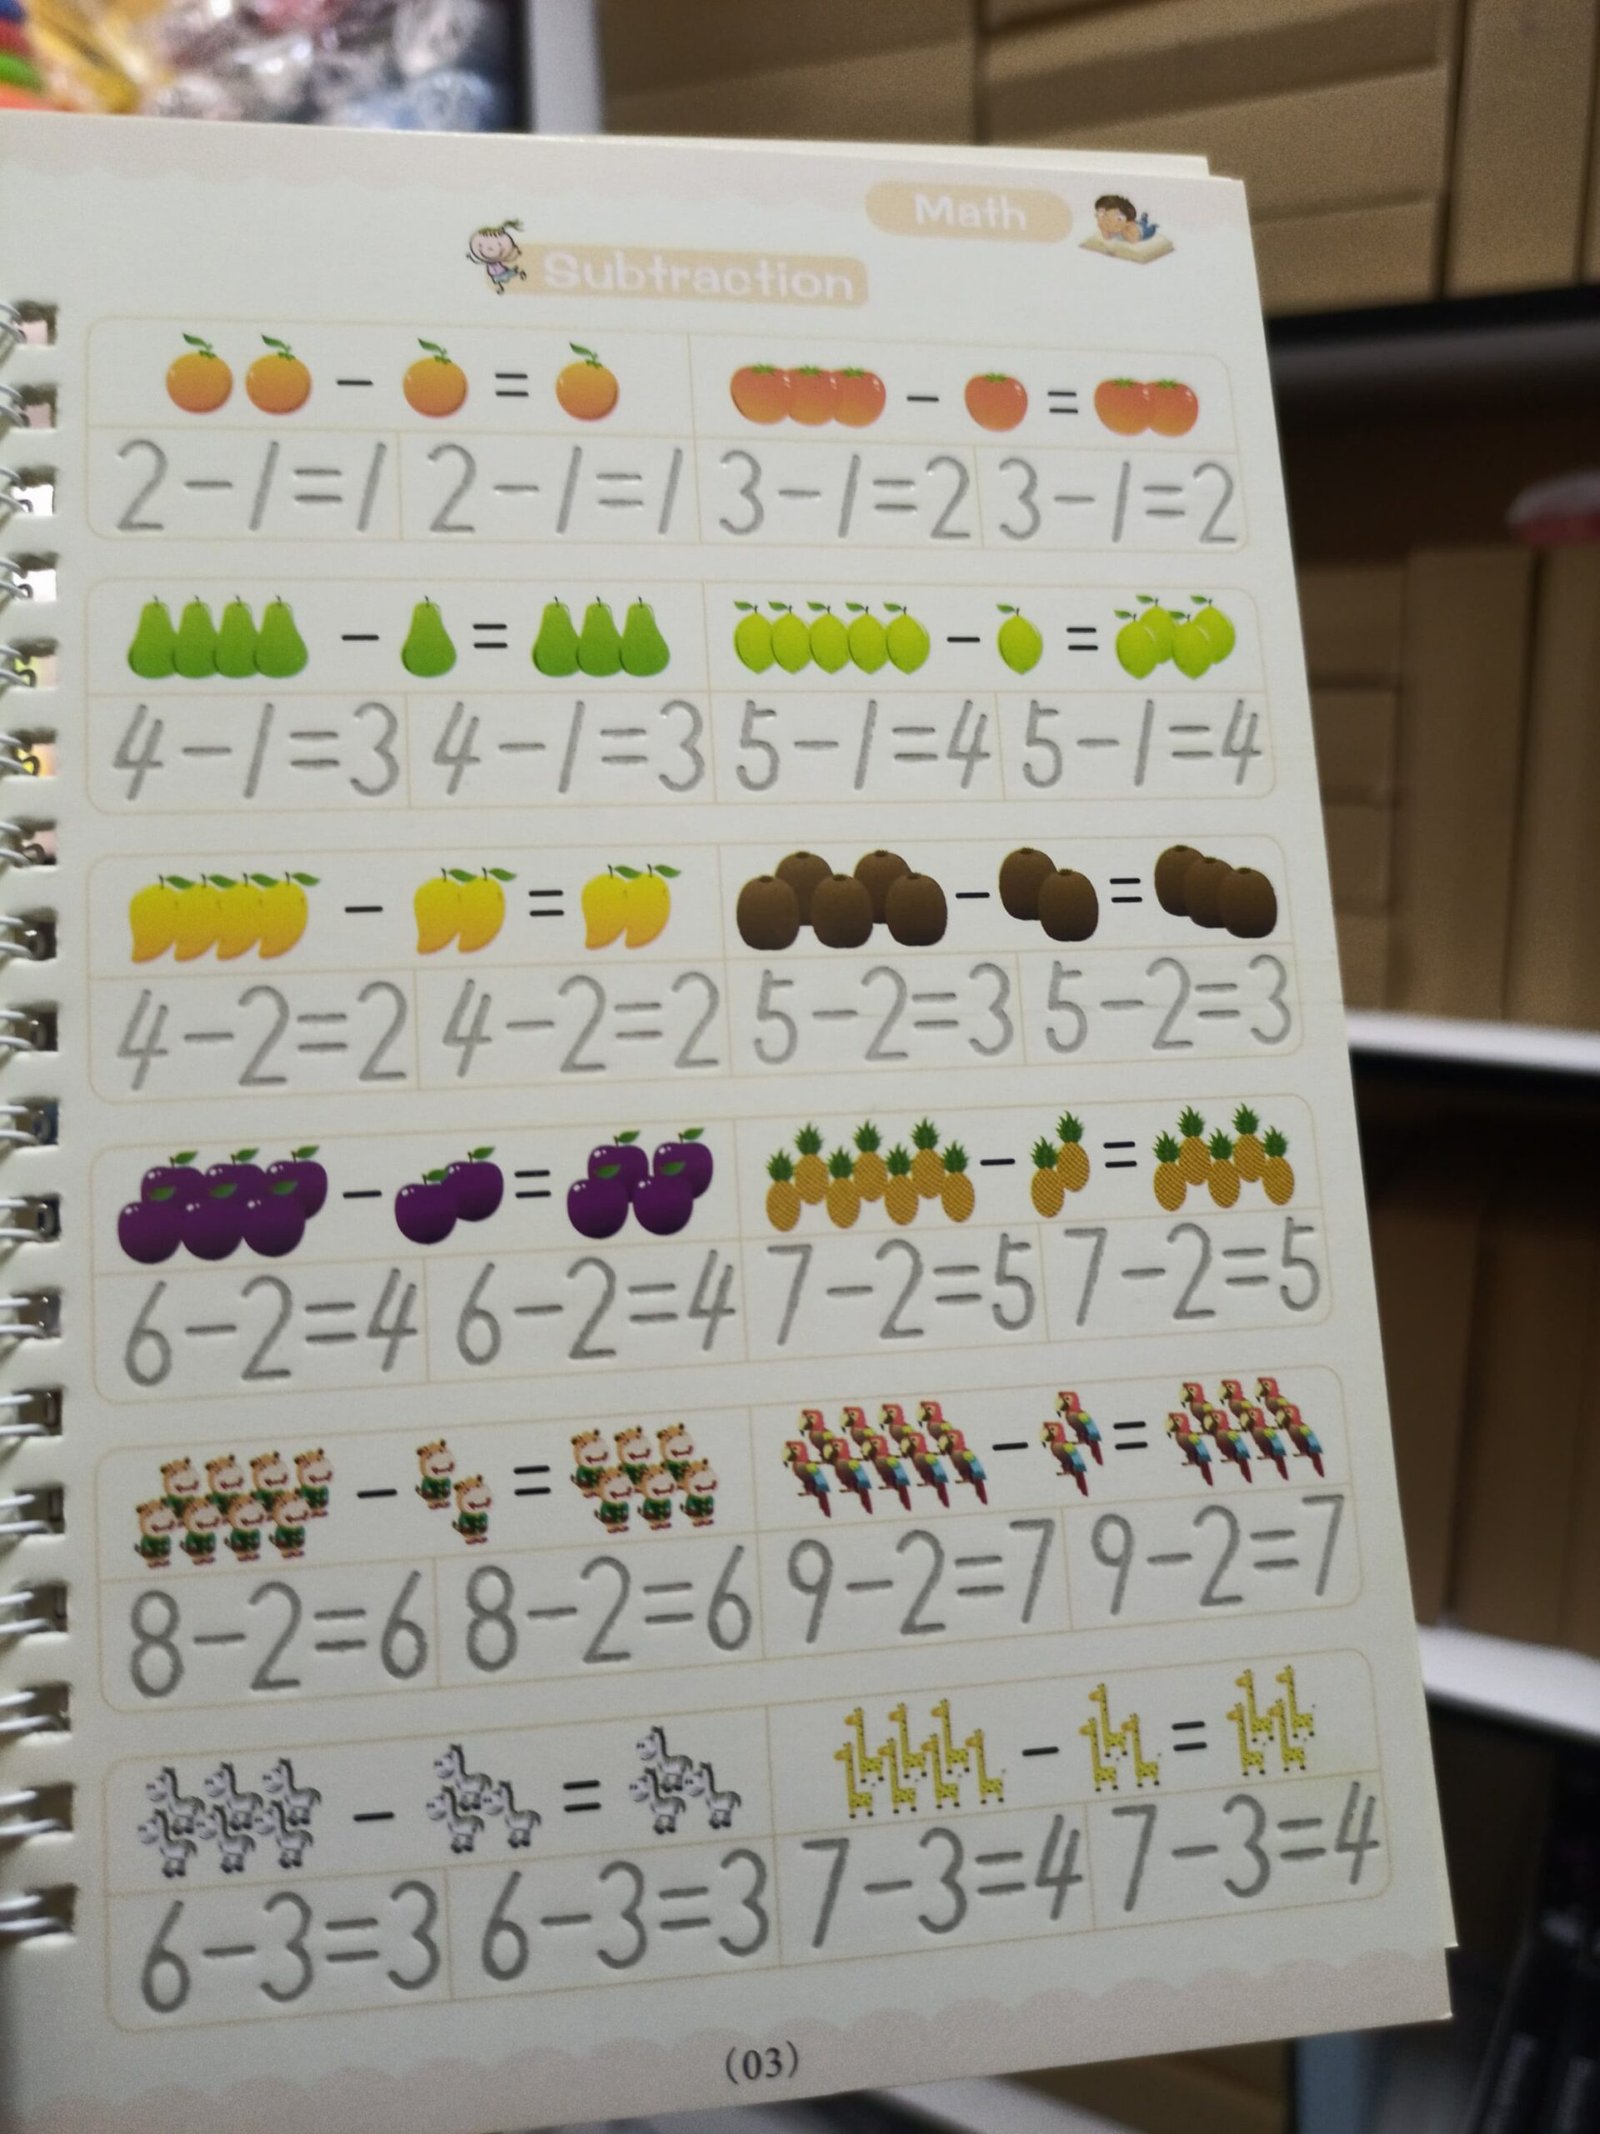 Math
Subtraction
2-1=1 2-1=1 3-1=2 3-1=2
4-1=3 4-1=3 5-1=4 5-1=4
4-2=2 4-2=2 5-2=3 5-2=3
6-2=4 6-2=4 7-2=5 7-2=5
8-2=6 8-2=6 9-2=7 9-2=7
6-3=3 6-3=3 7-3=4 7-3=4
(03)